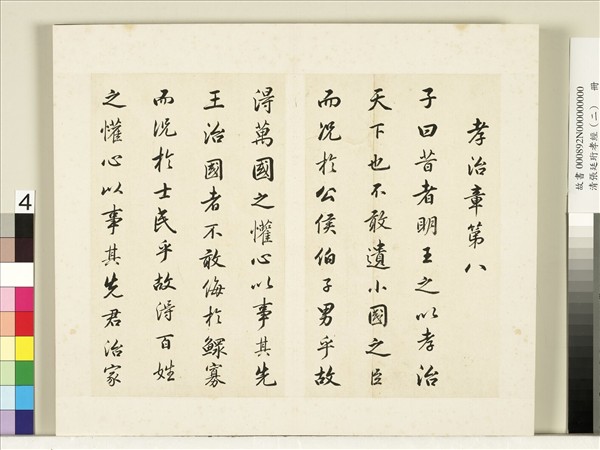 孝治章第八
子曰昔者明王之以孝治
天下也不敢遺小國之臣
而況於公侯伯子男乎故
得萬國之懽心以事其先
王治國者不敢侮於鰥寡
而況於士民乎故得百姓
之懽心以事其先君治家
4
故書000892N000000000
清張廷珩孝經(二) 冊